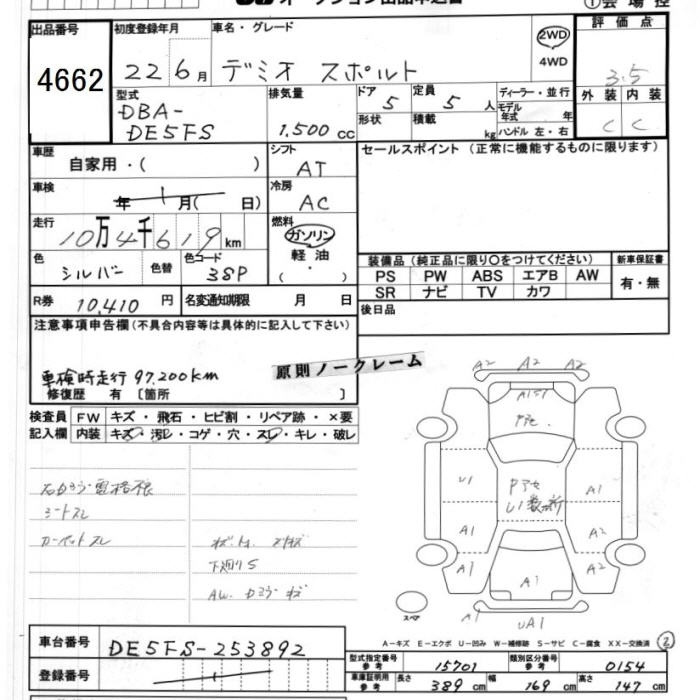 出品番号
4662
初度登録年月
22 6月
車名・グレード
デミオ スポルト
2WD
4WD
評価点
3.5
外装 内装
C C
型式
DBA-
DE5FS
排気量
1,500 cc
ドア 5
形状
定員 5 人
積載 kg
ディーラー・並行
モデル年式 年
ハンドル 左・右
車歴
自家用・( )
シフト
AT
車検
年 月( 日)
冷房
AC
走行
10万4千619 km
燃料
ガソリン
軽油
( ・ )
色
シルバー
色替
色コード
38P
R券 10,410 円
名変通知期限 月 日
セールスポイント (正常に機能するものに限ります)
装備品 (純正品に限り○をつけてください)
PS PW ABS エアB AW
SR ナビ TV カワ
新車保証書
有・無
後日品
注意事項申告欄(不具合内容等は具体的に記入して下さい)
車検時走行 97,200km
原則ノークレーム
修復歴 有 〔箇所 〕
検査員 FW キズ・飛石・ヒビ割・リペア跡・×要
記入欄 内装 キズ・汚レ・コゲ・穴・スレ・キレ・破レ
シートスレ
カーペットスレ
下廻りS
A2 A2 A2
U1
A1
A1
A1
A2
A1
A1
A2
UA1
スペア
A-キズ E-エクボ U-凹み W-補修跡 S-サビ C-腐食 XX-交換済
2
車台番号 DE5FS-253892
登録番号
型式指定番号 参考 15701
類別区分番号 参考 0154
車庫証明用 参考 長さ 389 cm 幅 169 cm 高さ 147 cm